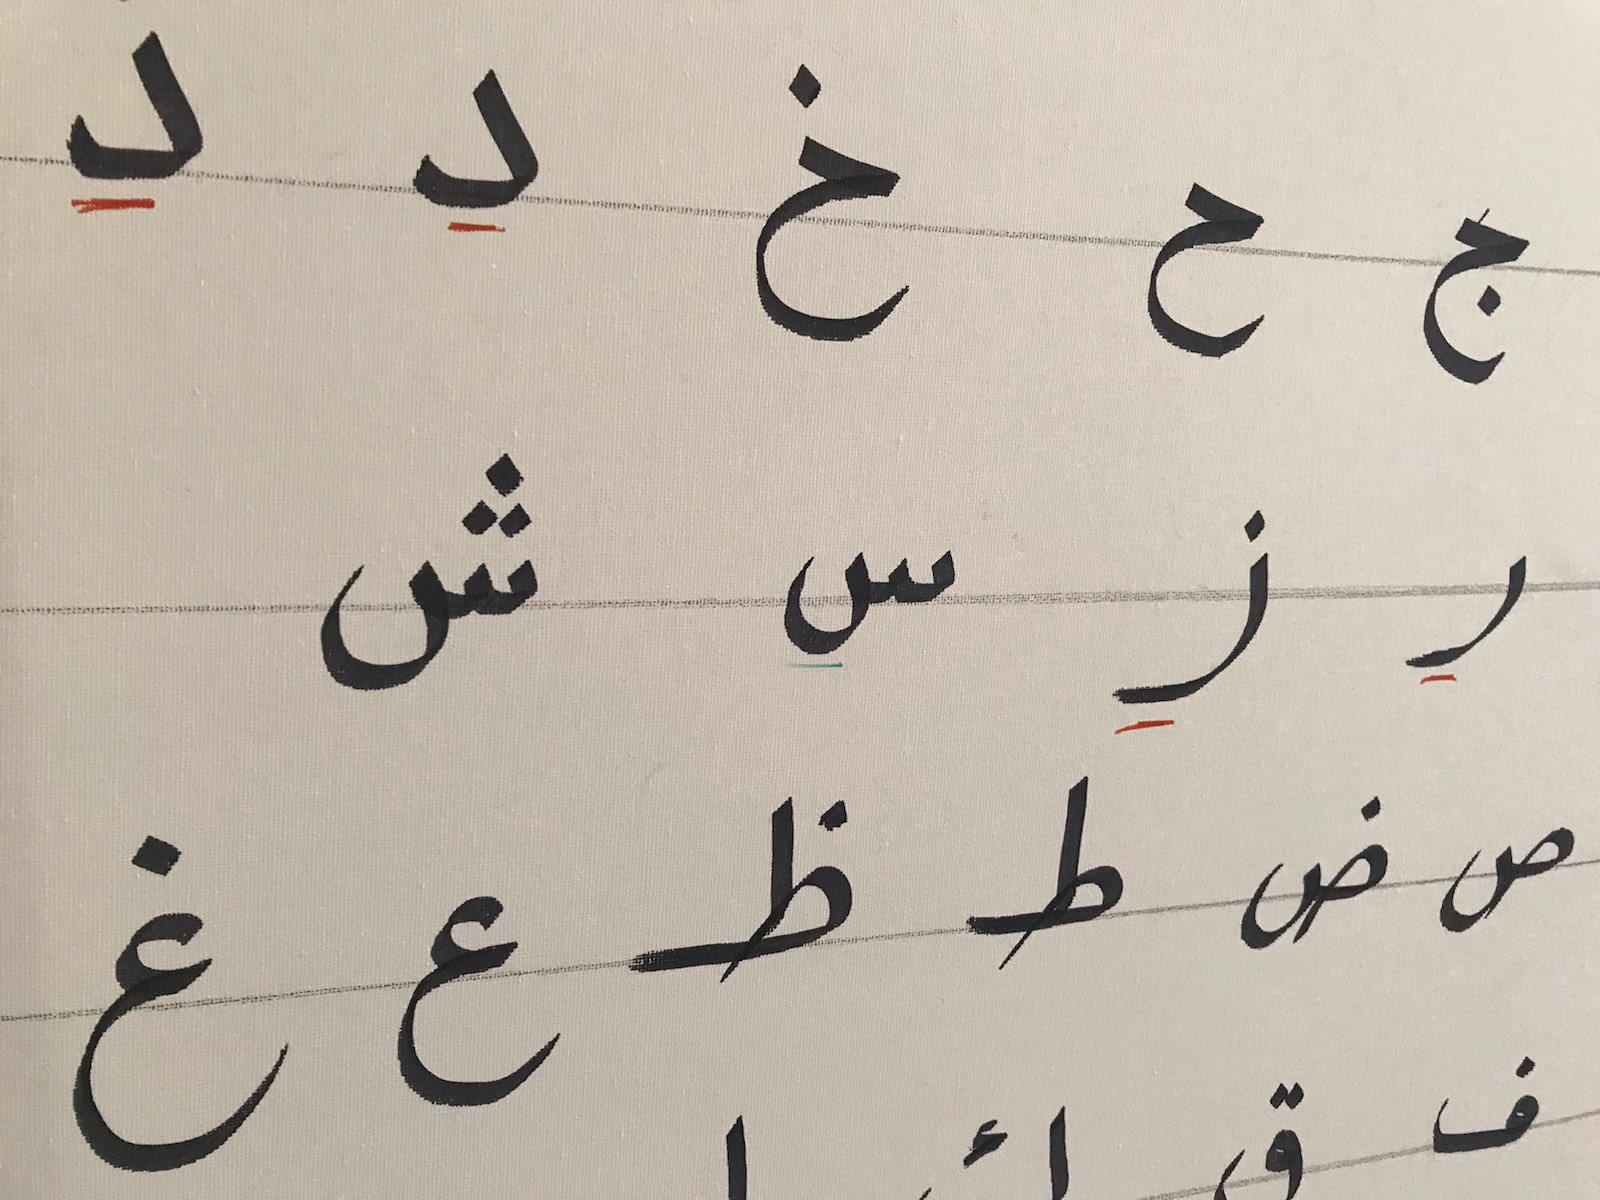 ج ح خ د ذ
ر ز س ش
ص ض ط ظ ع غ
ف ق ك ل